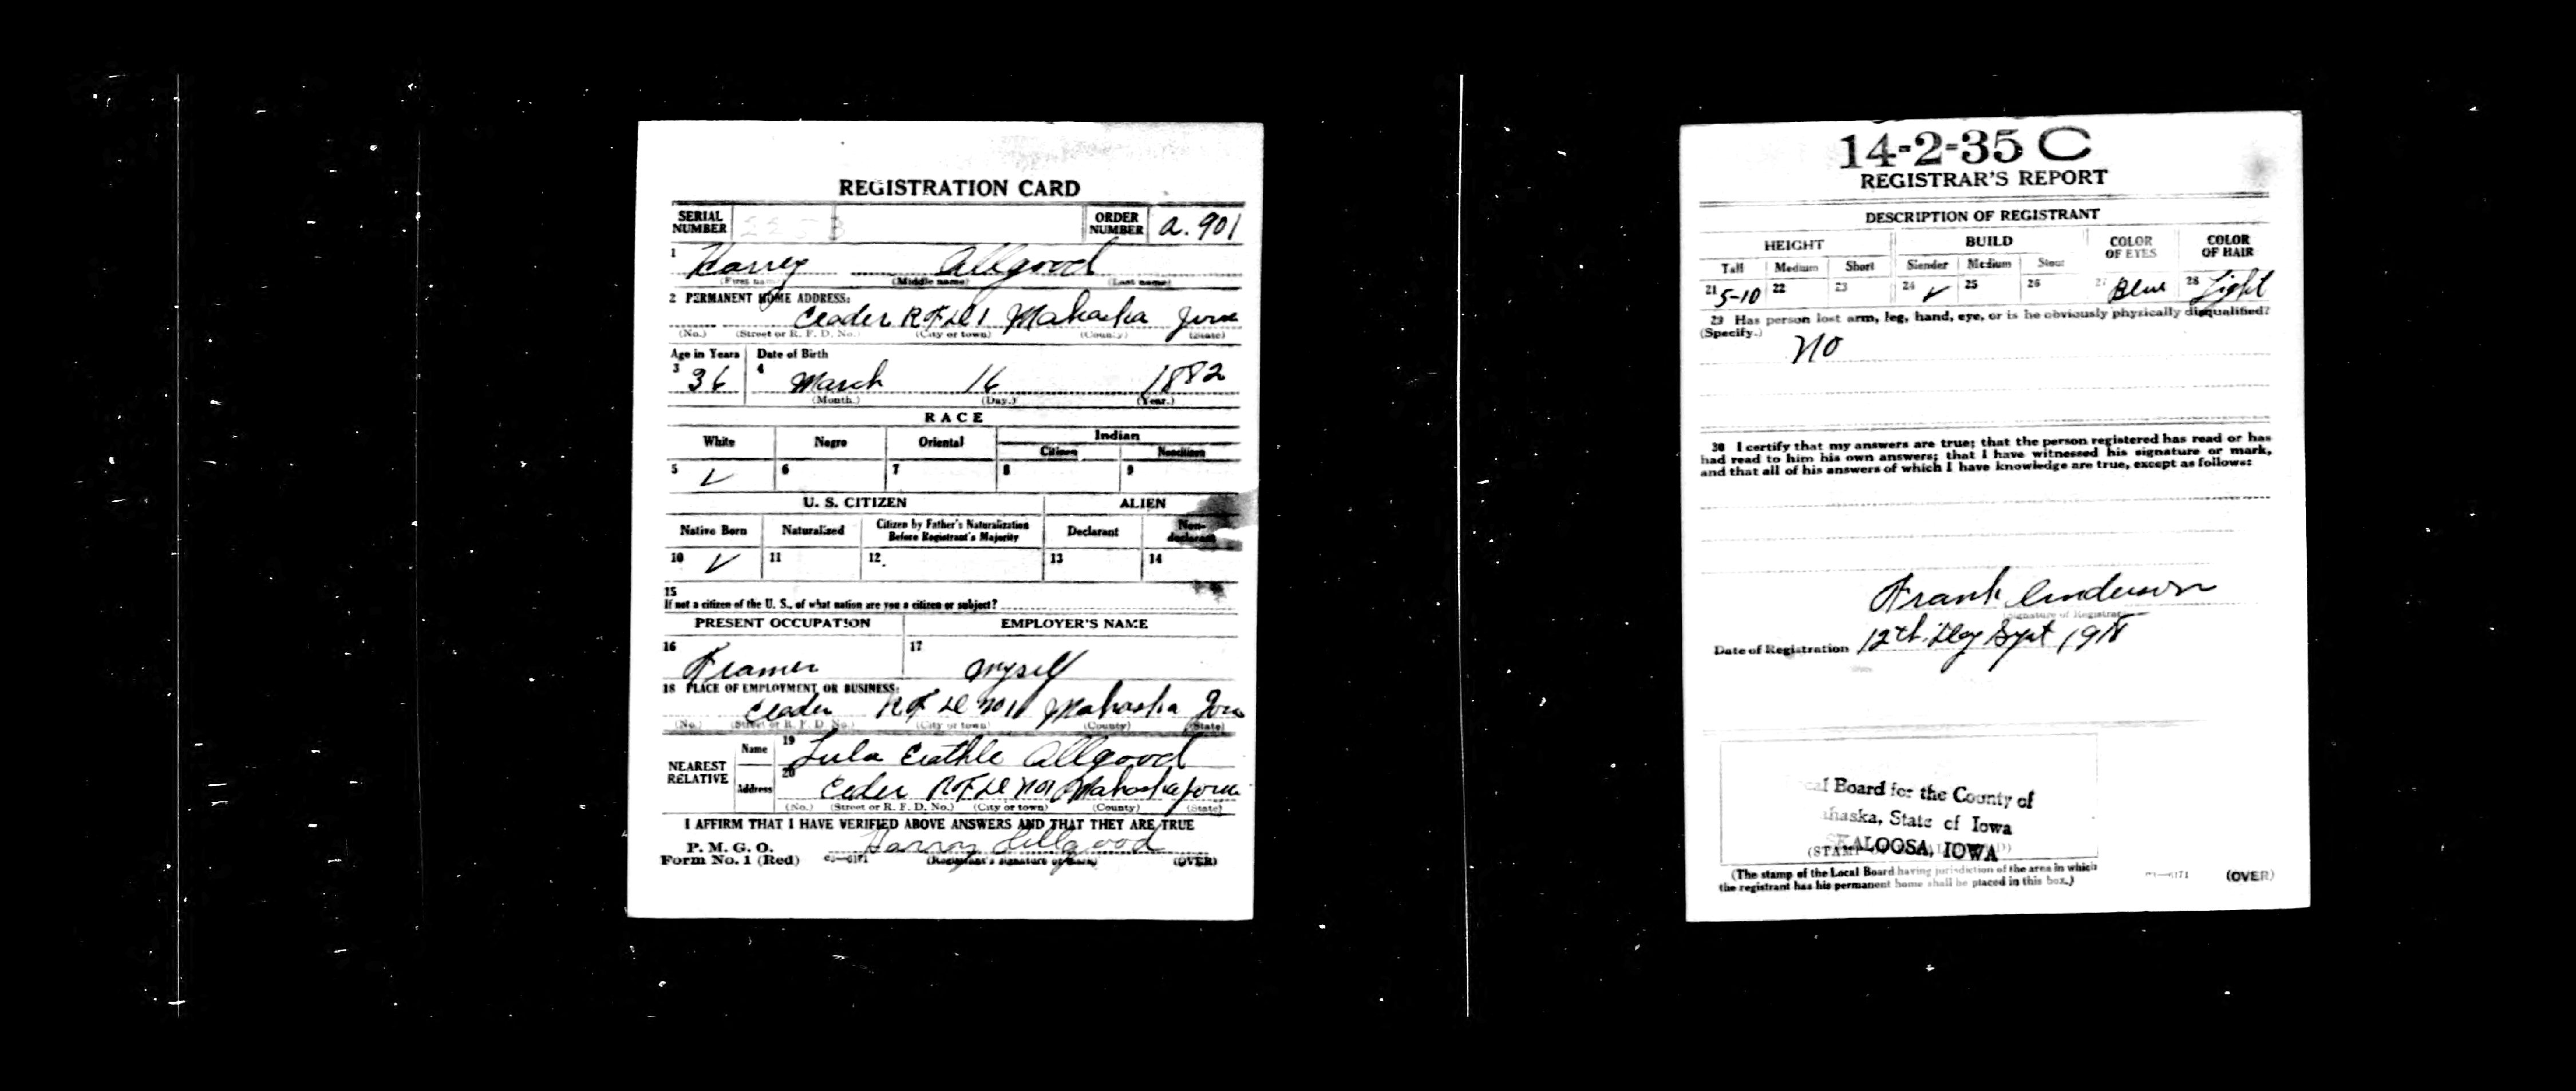 REGISTRATION CARD
SERIAL NUMBER ORDER NUMBER a. 901
1 Harrey Allgood
(First name) (Middle name) (Last name)
2 PERMANENT HOME ADDRESS:
Ceader R F D 1 Mahaska Iowa
(No.) (Street or R. F. D. No.) (City or town) (County) (State)
Age in Years Date of Birth
3 36 4 March 16 1882
(Month.) (Day.) (Year.)
RACE
White Negro Oriental Indian
Citizen Noncitizen
5 ✓ 6 7 8 9
U. S. CITIZEN ALIEN
Native Born Naturalized Citizen by Father's Naturalization Before Registrant's Majority Declarant Non-declarant
10 ✓ 11 12 13 14
15
If not a citizen of the U. S., of what nation are you a citizen or subject?
PRESENT OCCUPATION EMPLOYER'S NAME
16 Framer 17 myself
18 PLACE OF EMPLOYMENT OR BUSINESS:
Ceader R F D No 1 Mahaska Iow
(No.) (Street or R. F. D. No.) (City or town) (County) (State)
NEAREST RELATIVE
Name 19 Lula Allgood
Address 20 Ceder R F D No 1 Mahaska Iowa
(No.) (Street or R. F. D. No.) (City or town) (County) (State)
I AFFIRM THAT I HAVE VERIFIED ABOVE ANSWERS AND THAT THEY ARE TRUE
P. M. G. O.
Form No. 1 (Red) 03—6171 (Registrant's signature or mark) (OVER)
Harroy Allgood
14-2-35 C
REGISTRAR'S REPORT
DESCRIPTION OF REGISTRANT
HEIGHT BUILD COLOR OF EYES COLOR OF HAIR
Tall Medium Short Slender Medium Stout
21 5-10 22 23 24 ✓ 25 26 27 Blue 28 Light
29 Has person lost arm, leg, hand, eye, or is he obviously physically disqualified?
(Specify.) no
30 I certify that my answers are true; that the person registered has read or has
had read to him his own answers; that I have witnessed his signature or mark,
and that all of his answers of which I have knowledge are true, except as follows:
Frank Anderson
(Signature of Registrar)
Date of Registration 12th Day Sept 1918
cal Board for the County of
ahaska, State of Iowa
KALOOSA, IOWA
(The stamp of the Local Board having jurisdiction of the area in which
the registrant has his permanent home shall be placed in this box.)
03—6171 (OVER)